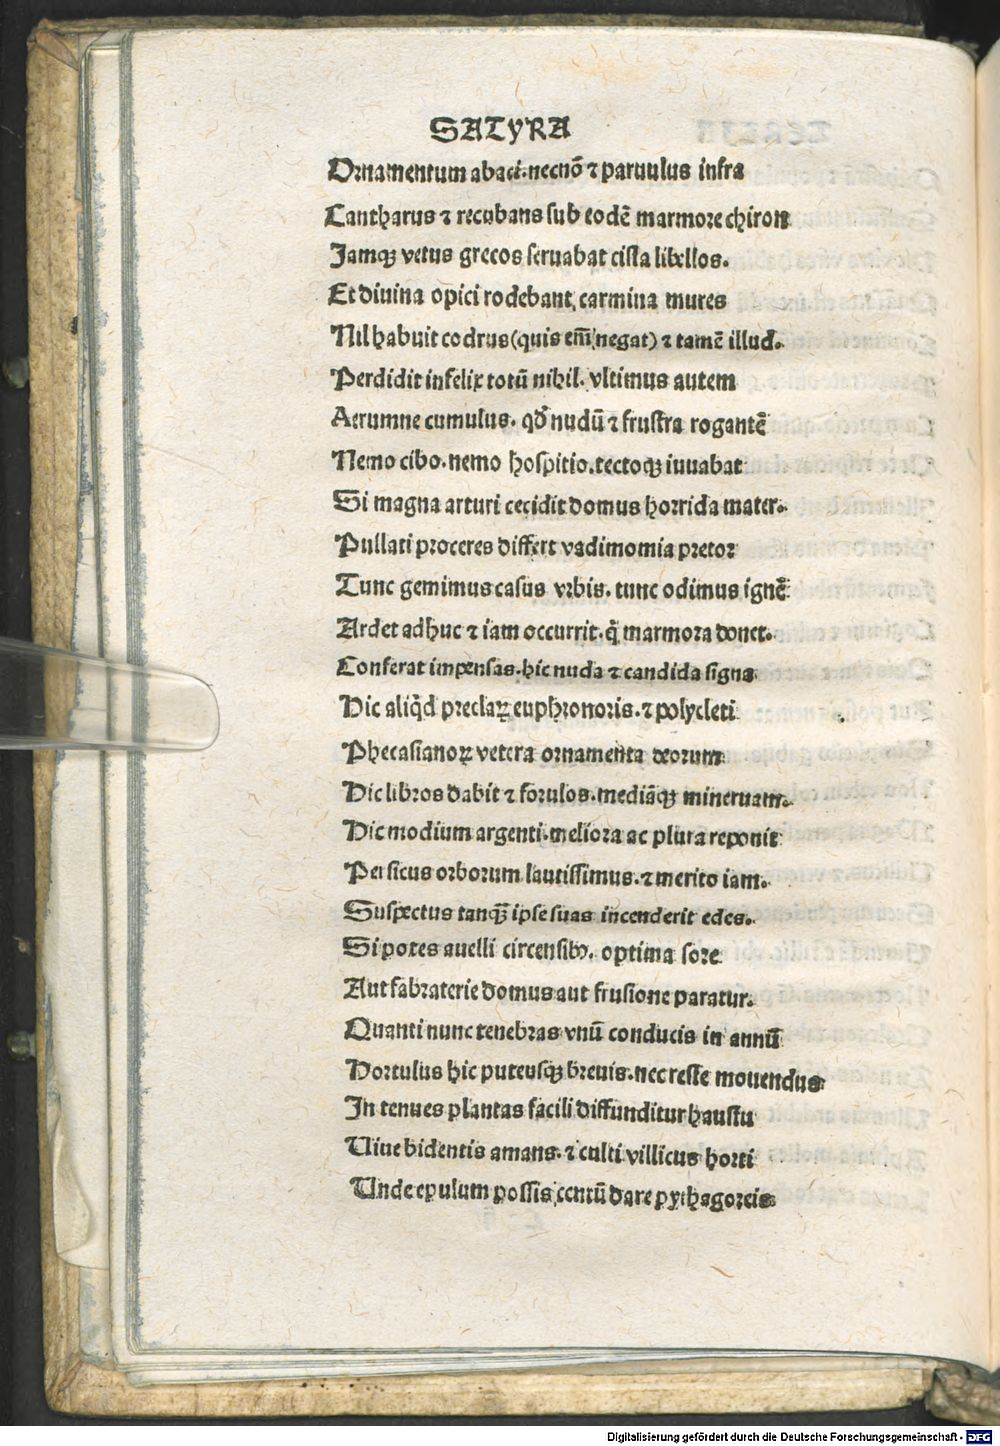 SATYRA
Ornamentum abaci. necnō ⁊ paruulus infra
Cantharus ⁊ recubans sub eodē marmore chiron
Jamqꝫ vetus grecos seruabat cista libellos.
Et diuina opici rodebant carmina mures
Nil habuit codrus (quis em̄ negat) ⁊ tamē illud.
Perdidit infelix totū nihil. vltimus autem
Aerumne cumulus. qđ nudū ⁊ frustra rogantē
Nemo cibo. nemo hospitio. tectoqꝫ iuuabat
Si magna arturi cecidit domus horrida mater.
Pullati proceres differt vadimomia pretor
Tunc gemimus casus vrbis. tunc odimus ignē
Ardet adhuc ⁊ iam occurrit. q̄ marmora donet.
Conferat impensas. hic nuda ⁊ candida signa
Hic aliq̄d preclaꝝ euphronoris. ⁊ polycleti
Phecasianoꝝ vetera ornamenta deorum
Hic libros dabit ⁊ forulos. mediāqꝫ mineruam.
Hic modium argenti. meliora ac plura reponit
Persicus orborum lautissimus. ⁊ merito iam.
Suspectus tanqꝫ ipse suas incenderit edes.
Si potes auelli circensibꝫ. optima sore
Aut fabraterie domus aut frusione paratur.
Quanti nunc tenebras vnū conducis in annū
Hortulus hic puteusqꝫ breuis. nec reste mouendus
In tenues plantas facili diffunditur haustu
Uiue bidentis amans. ⁊ culti villicus horti
Unde epulum possis centū dare pythagoreis
Digitalisierung gefördert durch die Deutsche Forschungsgemeinschaft - DFG